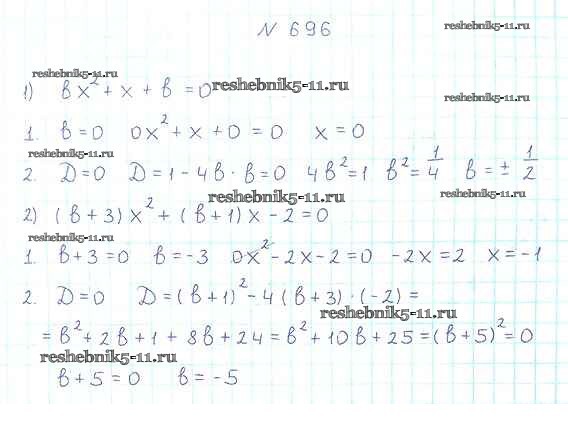 N 696
reshebnik5-11.ru
reshebnik5-11.ru
1) вx² + x + в = 0 reshebnik5-11.ru
reshebnik5-11.ru
1. в = 0 0x² + x + 0 = 0 x = 0
reshebnik5-11.ru
2. D = 0 D = 1 - 4в · в = 0 4в² = 1 в² = 1/4 в = ± 1/2
reshebnik5-11.ru reshebnik5-11.ru
2) (в + 3) x² + (в + 1) x - 2 = 0
reshebnik5-11.ru
1. в + 3 = 0 в = -3 0x² - 2x - 2 = 0 -2x = 2 x = -1
2. D = 0 D = (в + 1)² - 4 (в + 3) · (-2) =
reshebnik5-11.ru
= в² + 2в + 1 + 8в + 24 = в² + 10в + 25 = (в + 5)² = 0
reshebnik5-11.ru
в + 5 = 0 в = -5